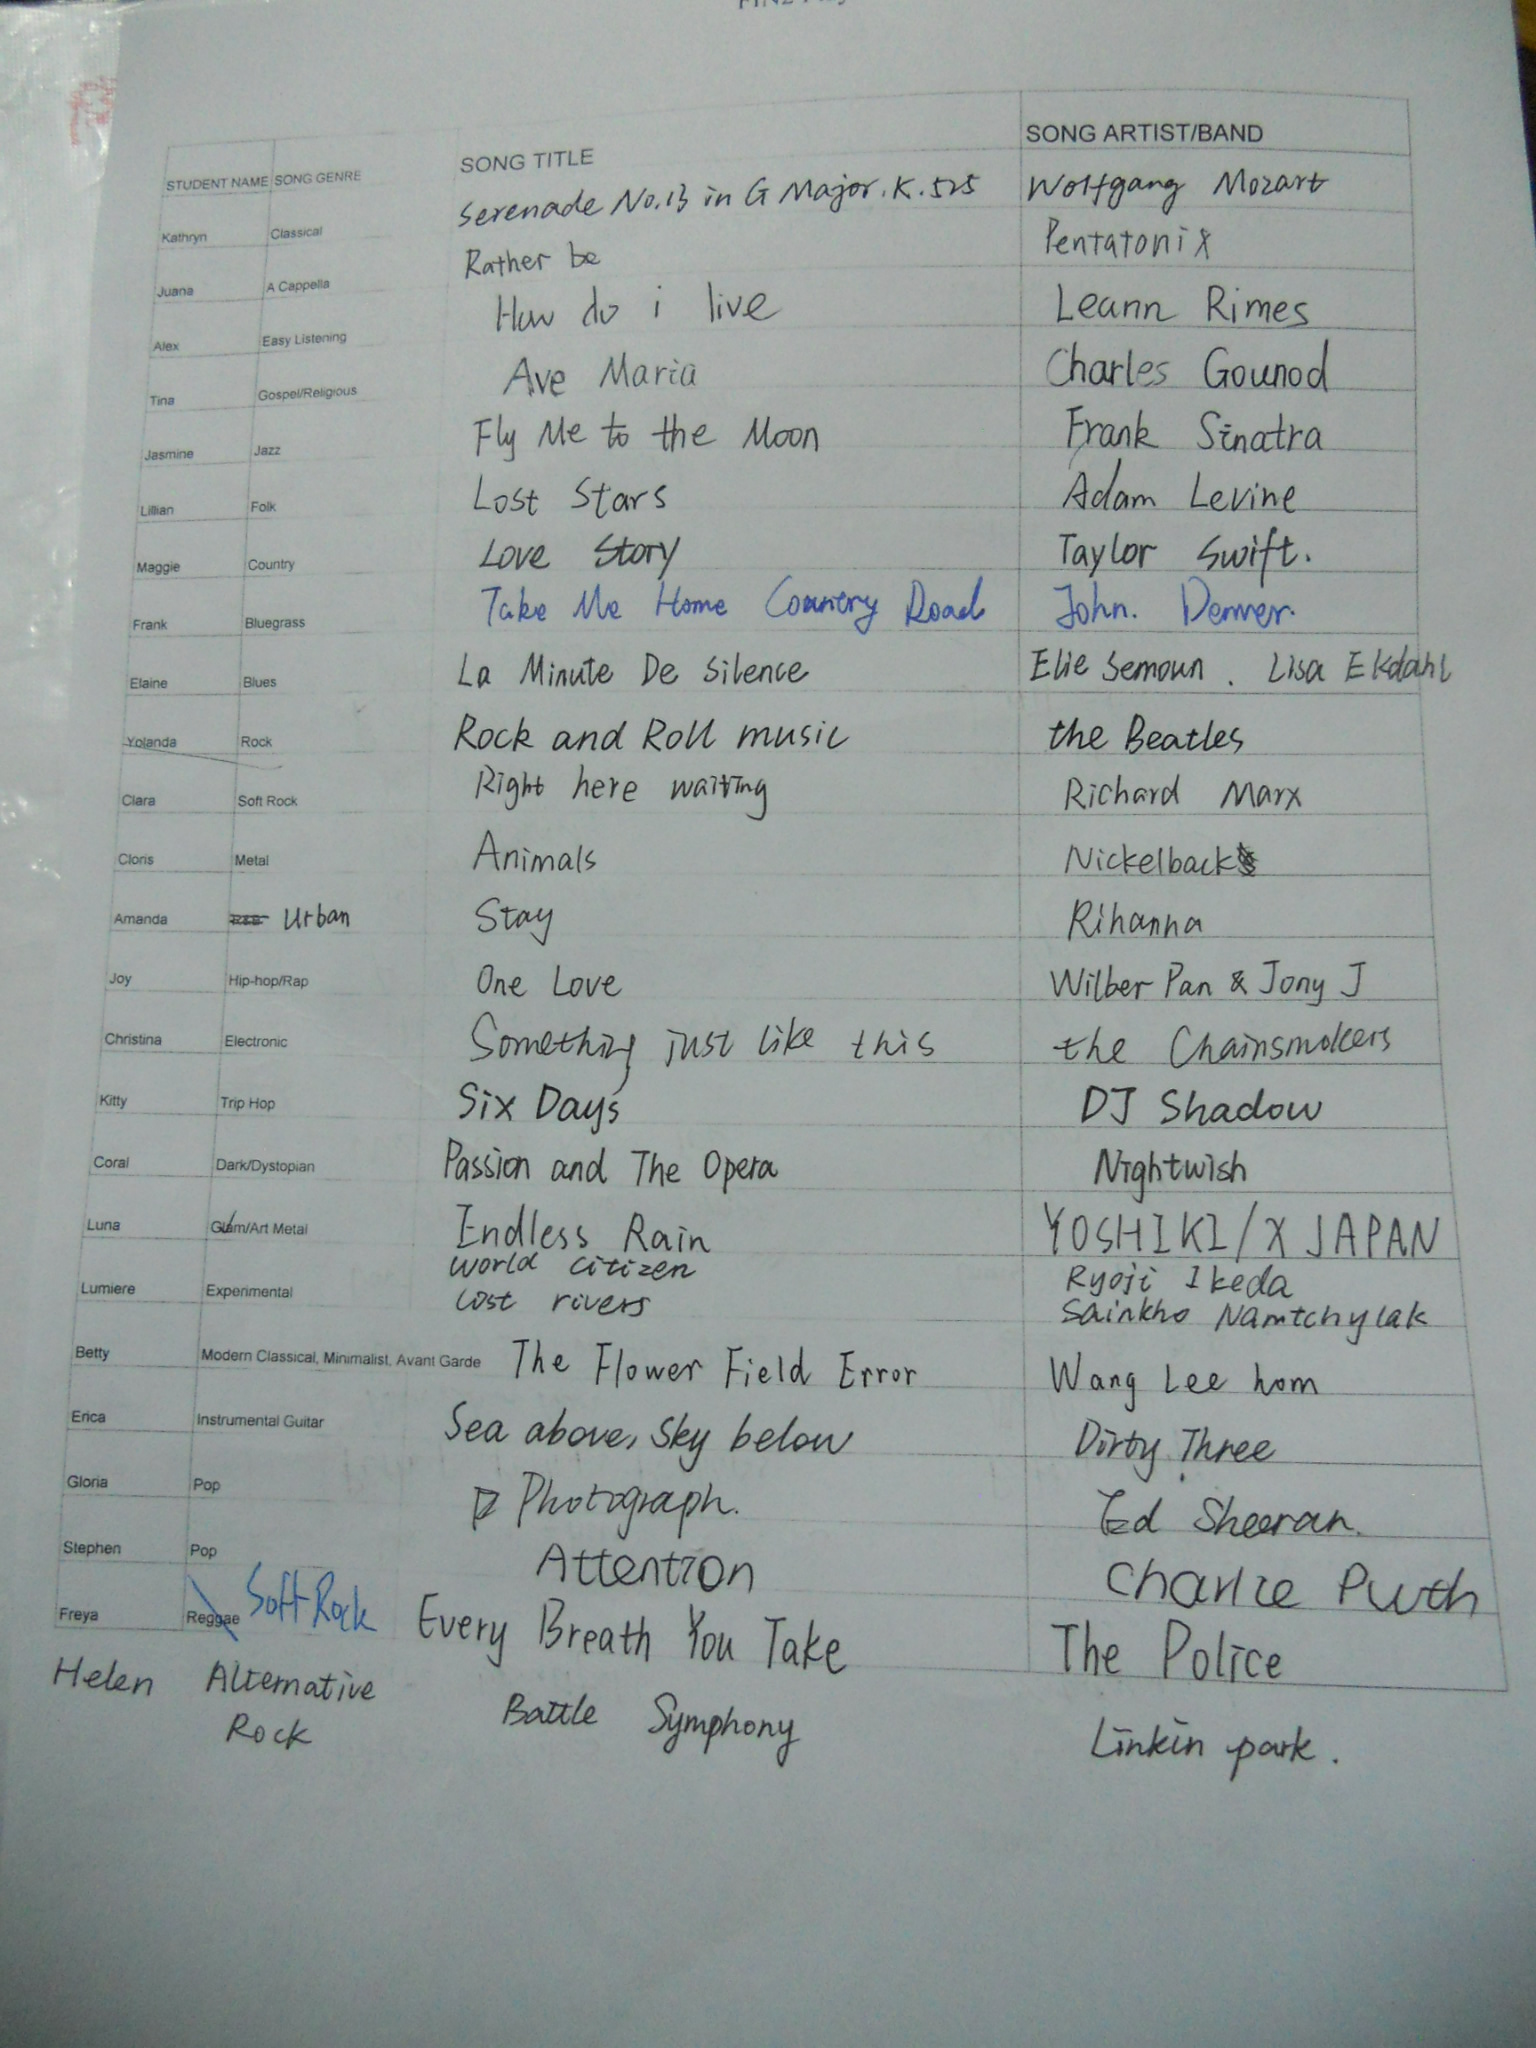 STUDENT NAME SONG GENRE SONG TITLE SONG ARTIST/BAND
Kathryn Classical Serenade No.13 in G Major. K. 525 Wolfgang Mozart
Juana A Cappella Rather be Pentatonix
Alex Easy Listening How do i live Leann Rimes
Tina Gospel/Religious Ave Maria Charles Gounod
Jasmine Jazz Fly Me to the Moon Frank Sinatra
Lillian Folk Lost Stars Adam Levine
Maggie Country Love Story Taylor Swift.
Frank Bluegrass Take Me Home Country Road John. Denver.
Elaine Blues La Minute De Silence Elie Semoun . Lisa Ekdahl
Yolanda Rock Rock and Roll music the Beatles
Clara Soft Rock Right here waiting Richard Marx
Cloris Metal Animals Nickelback
Amanda Urban Stay Rihanna
Joy Hip-hop/Rap One Love Wilber Pan & Jony J
Christina Electronic Something just like this the Chainsmokers
Kitty Trip Hop Six Days DJ Shadow
Coral Dark/Dystopian Passion and The Opera Nightwish
Luna Glam/Art Metal Endless Rain YOSHIKI/X JAPAN
Lumiere Experimental World citizen Ryoji Ikeda
Lost rivers Sainkho Namtchylak
Betty Modern Classical, Minimalist, Avant Garde The Flower Field Error Wang Lee hom
Erica Instrumental Guitar Sea above, Sky below Dirty Three
Gloria Pop Photograph. Ed Sheeran.
Stephen Pop Attention Charlie Puth
Freya Reggae Soft Rock Every Breath You Take The Police
Helen Alternative Battle Symphony Linkin park.
Rock